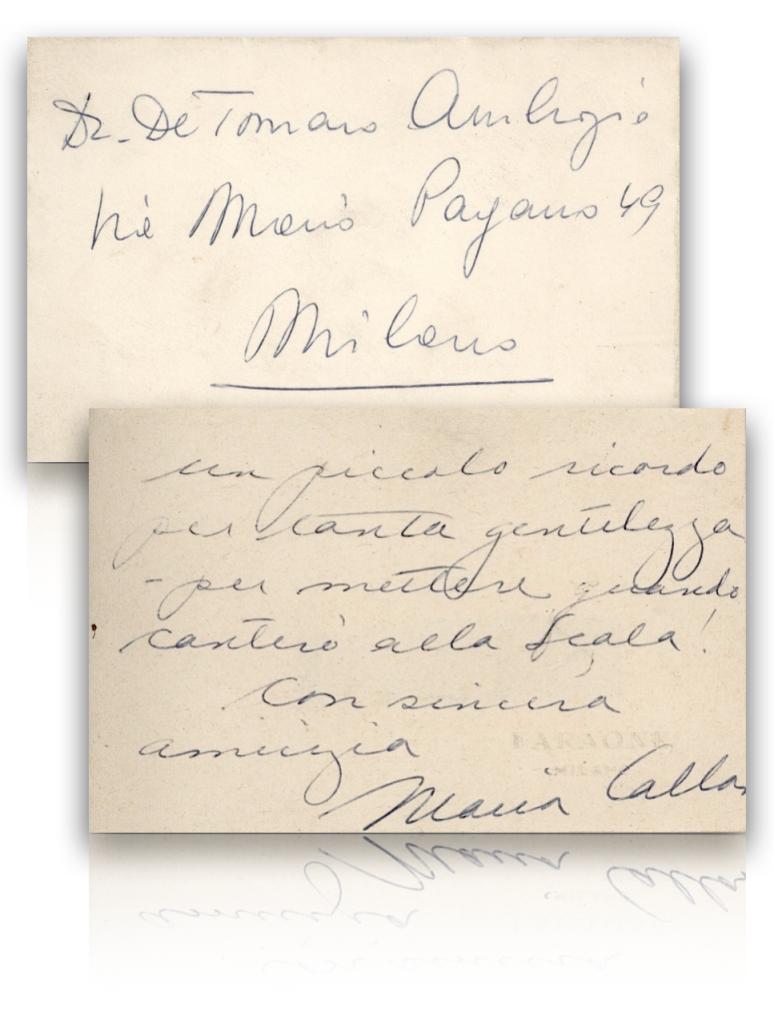 Dr. De Tomaso Ambrogio
Via Mario Pagano 49
Milano
un piccolo ricordo
per tanta gentilezza
- per mettere quando
canterò alla Scala!
Con sincera
amicizia
FARAONE
MILANO
Maria Callas